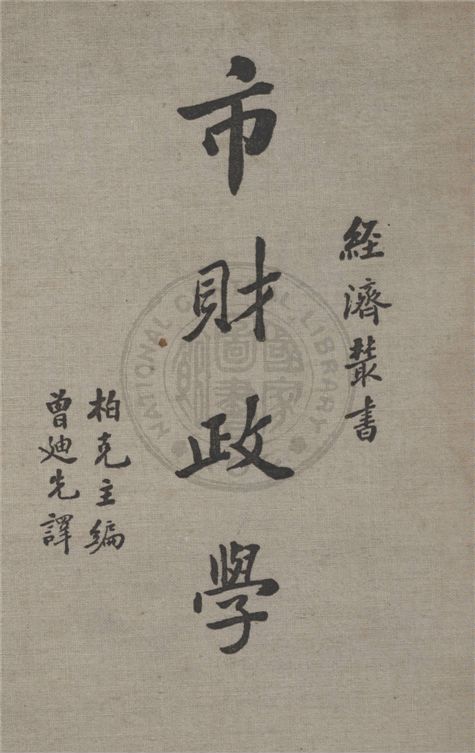 經濟叢書
市財政學
柏克主編
曾廸先譯
NATIONAL CENTRAL LIBRARY
國家圖書館